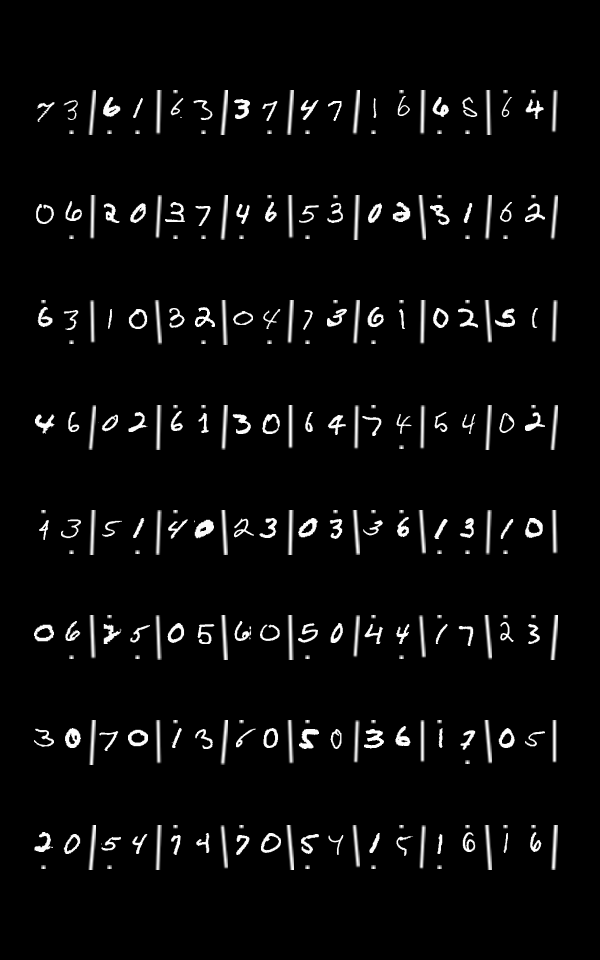 7 3 | 6 1 | 6 3 | 3 7 | 4 7 | 1 6 | 6 5 | 6 4 |
0 6 | 2 0 | 3 7 | 4 6 | 5 3 | 0 2 | 3 1 | 6 2 |
6 3 | 1 0 | 3 2 | 0 4 | 7 3 | 6 1 | 0 2 | 5 1 |
4 6 | 0 2 | 6 1 | 3 0 | 6 4 | 7 4 | 5 4 | 0 2 |
4 3 | 5 1 | 4 0 | 2 3 | 0 3 | 3 6 | 1 3 | 1 0 |
0 6 | 2 5 | 0 5 | 6 0 | 5 0 | 4 4 | 1 7 | 2 3 |
3 0 | 7 0 | 1 3 | 6 0 | 5 0 | 3 6 | 1 7 | 0 5 |
2 0 | 5 4 | 7 4 | 7 0 | 5 4 | 1 5 | 1 6 | 1 6 |